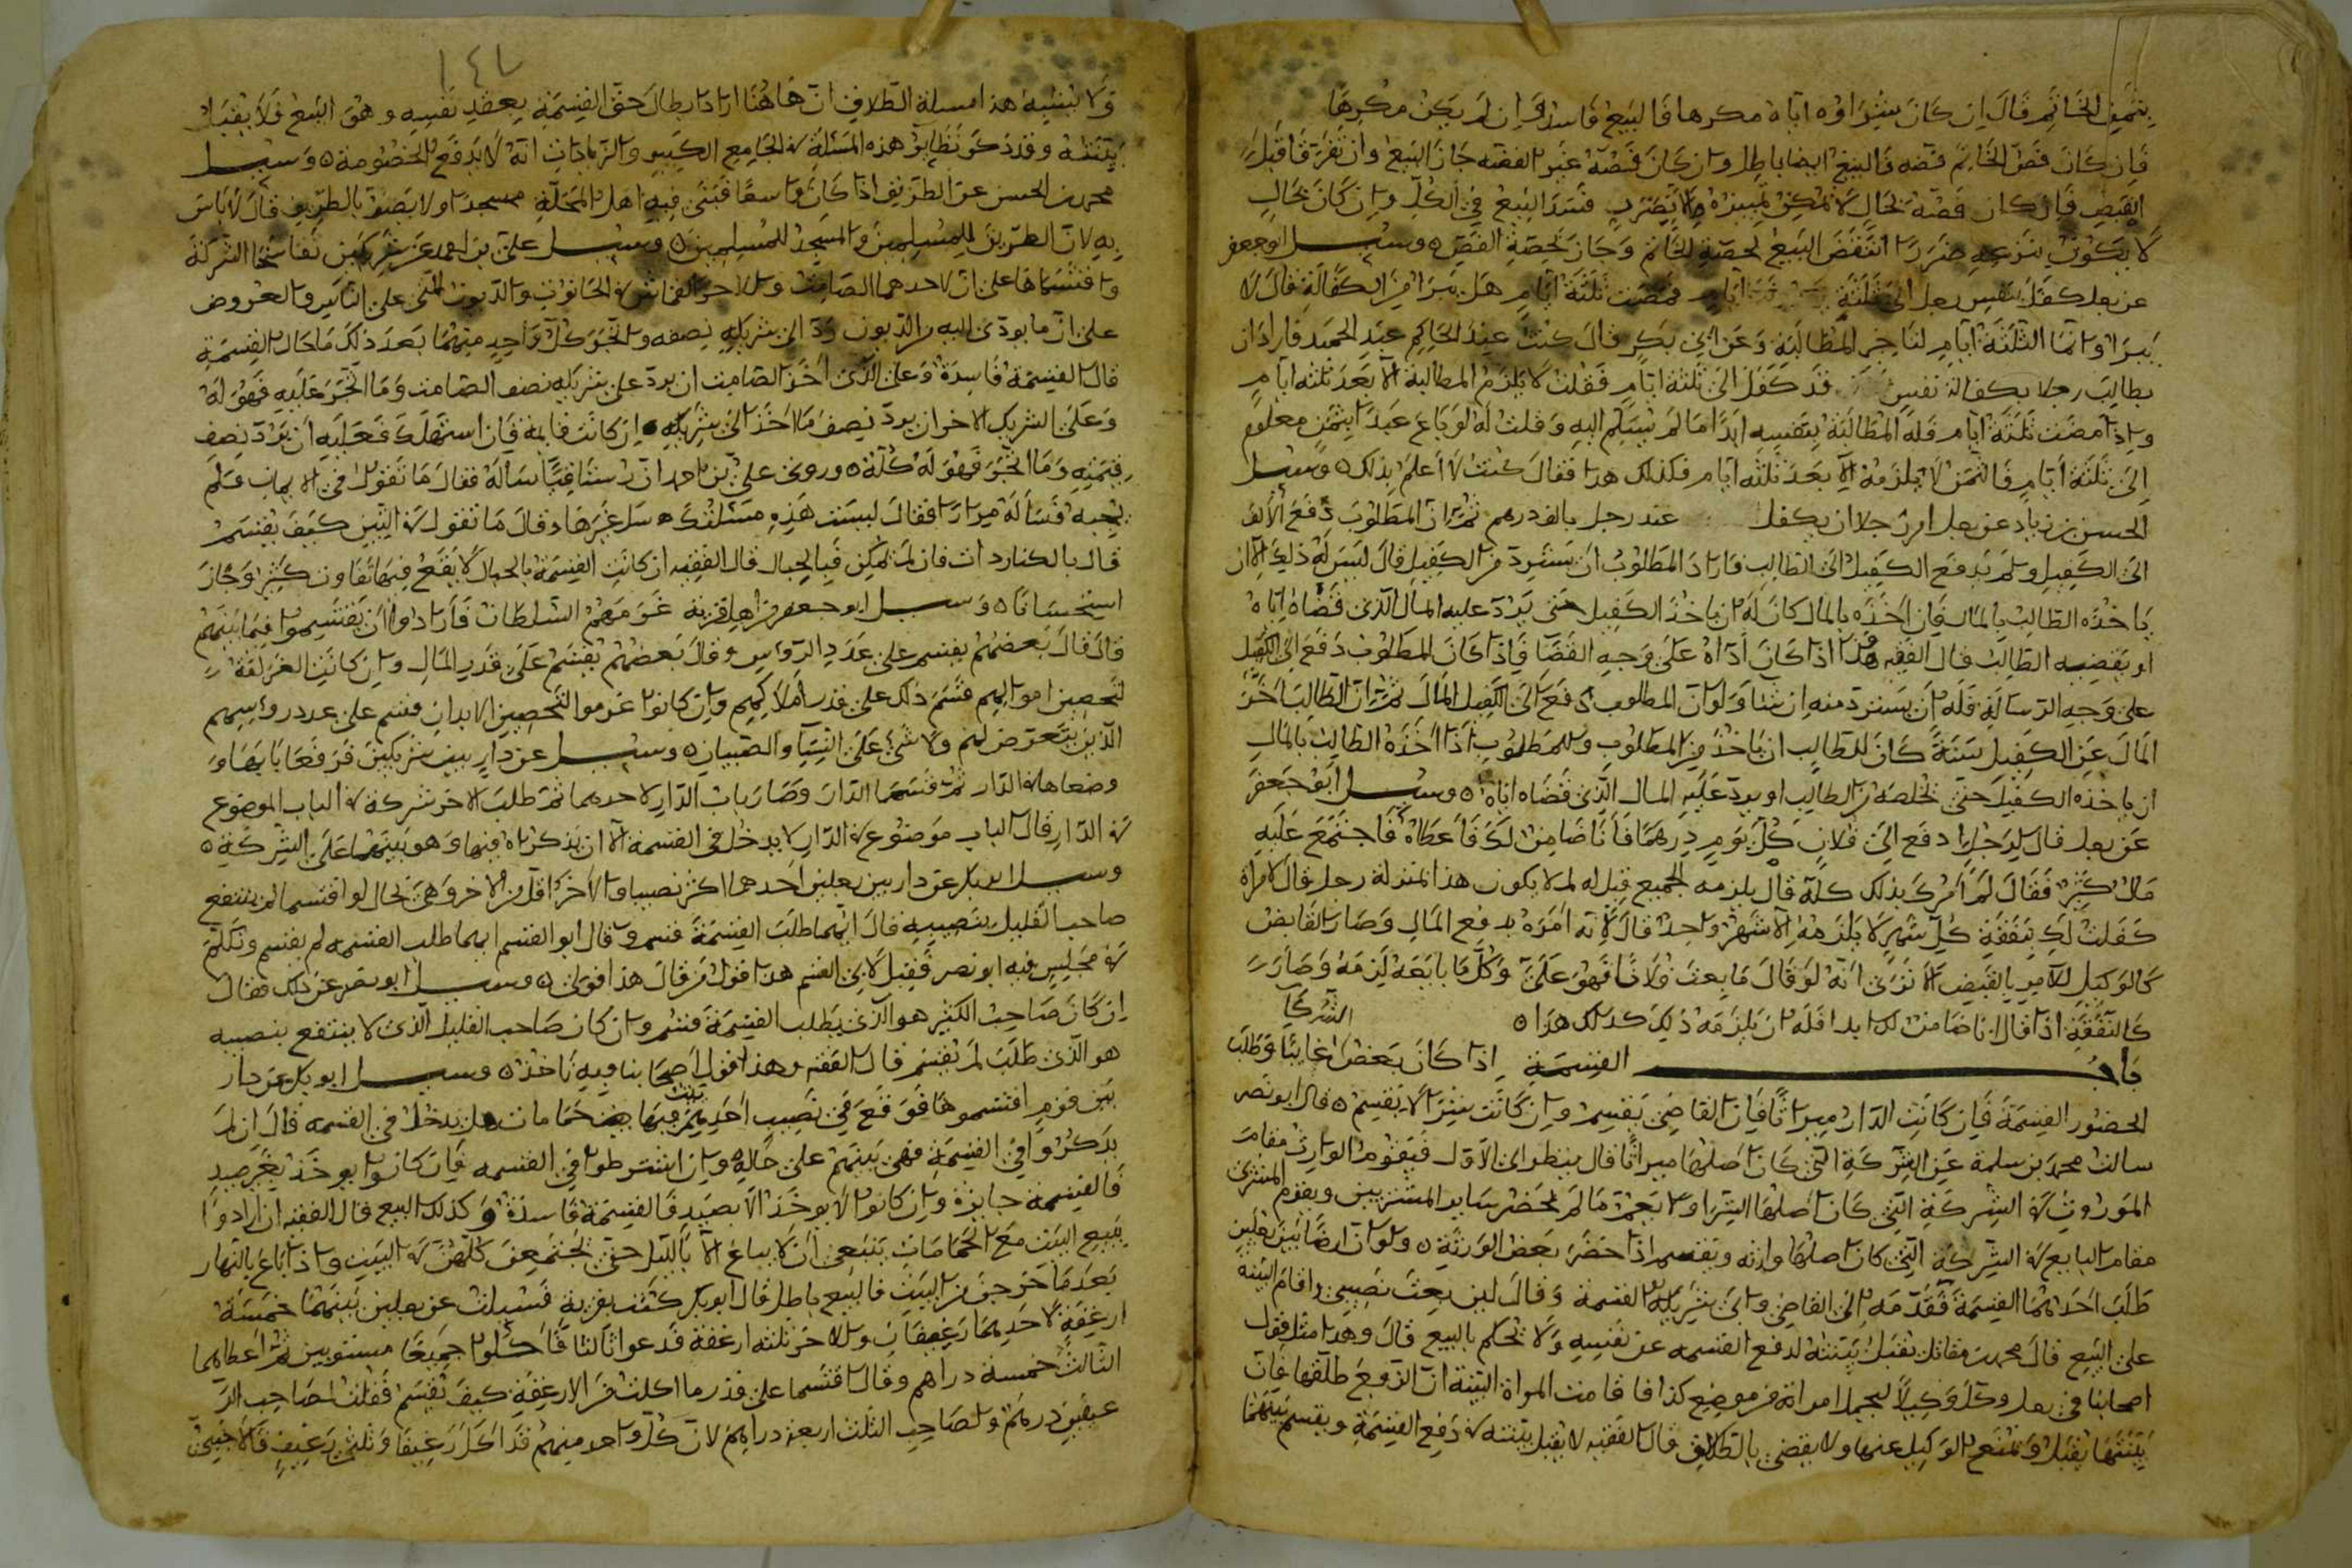 بثمن الخاتم قال ان كان شراؤه اياه مكرها فالبيع فاسد وان لم يكن مكرها
فان كان فص الخاتم فضه فالبيع ايضا باطل وان كان فصه غير الفضه جاز البيع وان تفرقا قبل
القبض فان كان فصه بحال لا يمكن تمييزه الا بضرر فسد البيع في الكل وان كان بحال
لا يكون بنزعه ضررا انتقض البيع بحصة الخاتم وجاز بحصة الفص وسئل ابو جعفر
عن رجل كفل بنفس رجل الى ثلثة ايام فمضت ثلثة ايام هل يبرا من الكفالة قال لا
يبرا وانما الثلثة ايام لتاخير المطالبة وعن ابي بكر قال كنت عند الحاكم عبد الحميد فاراد ان
يطالب رجلا بكفالة نفس قد كفل الى ثلثة ايام فقلت لا يلزم المطالبة الا بعد ثلثة ايام
واذا مضت ثلثة ايام فله المطالبة بنفسه ابدا ما لم يسلم اليه وقلت له لو باع عبدا بثمن معلوم
الى ثلثة ايام فالثمن لا يلزمه الا بعد ثلثه ايام فكذلك هذا فقال كنت لا اعلم بذلك وسئل
الحسن بن زياد عن رجل امر رجلا ان يكفل عند رجل بالف درهم ثم ان المطلوب دفع الالف
الى الكفيل ولم يدفع الكفيل الى الطالب فاراد المطلوب ان يسترد من الكفيل قال ليس له ذلك الا ان
ياخذه الطالب بالمال فان اخذه بالمال كان له ان ياخذ الكفيل حتى يرد عليه المال الذي قضاه اياه
او يقضيه الطالب قال الفقيه هذا اذا كان اداه على وجه القضا فاذا كان المطلوب دفع الى الكفيل
على وجه الرسالة فله ان يسترد منه ان شا ولو ان المطلوب دفع الى الكفيل المال ثم ان الطالب اخر
المال عن الكفيل سنة كان للطالب ان ياخذ من المطلوب وللمطلوب اذا اخذه الطالب بالمال
ان ياخذه الكفيل حتى يخلصه من الطالب او يرد عليه المال الذي قضاه اياه وسئل ابو جعفر
عن رجل قال لرجل ادفع الى فلان كل يوم درهما فانا ضامن لك فاعطاه فاجتمع عليه
مال كثير فقال لم امرك بذلك كله قال يلزمه الجميع قيل له لم لا يكون هذا بمنزلة رجل قال لامراة
كفلت لك بنفقة كل شهر لا يلزمه الا شهر واحد قال لانه امره بدفع المال وصار القابض
كالوكيل للامر بالقبض الا ترى انه لو قال ما بعت فلانا فهو علي وكلما بايعه لزمه وصار
كالنفقة اذا قال انا ضامن لك ابدا فله ان يلزمه ذلك كذلك هذا
باب القسمة اذا كان بعض الشركا غايبا وطلب
الحضور القسمة فان كانت الدار ميراثا فان القاضي يقسم وان كانت شرا لا يقسم قال ابو نصر
سالت محمد بن سلمة عن الشركة التي كان اصلها ميراثا قال ينظر الى الاول فيقوم الوارث مقام
الموروث في الشركة التي كان اصلها الشرا ولا يعم ما لم يحضر ساير المشتريين ويقوم المشتري
مقام البايع في الشركة التي كان اصلها وارثه ويقسم اذا حضر بعض الورثة ولو ان ارضا بين رجلين
طلب احدهما القسمة فقدمه الى القاضي وابى شريكه القسمة وقال اني بعت نصيبي واقام البينة
على البيع قال محمد بن مقاتل تقبل بينته لدفع القسمه عن نفسه ولا يحكم بالبيع قال وهذا مثل قول
اصحابنا في رجل وكل وكيلا ليحمل امراته من موضع كذا فاقامت المراة البينة ان الزوج طلقها فان
بينتها تقبل ويمنع الوكيل عنها ولا يقضي بالطلاق قال الفقيه لا يقبل بينته في دفع القسمة ويقسم بينهما
١٤٢
ولا يشبه هذا مسلة الطلاق ان هاهنا اراد ابطال حق القسمة بعقد نفسه وهو البيع فلا يقبل
بينته وقد ذكر نظاير هذه المسئلة في الجامع الكبير والزيادات انه لا يدفع الخصومة وسئل
محمد بن الحسن عن الطريق اذا كان واسعا فبنى فيه اهل المحلة مسجدا ولا يضر بالطريق قال لا باس
به لان الطريق للمسلمين والمسجد للمسلمين وسئل علي بن احمد عن شريكين تفاسخا الشركة
واقتسماها على ان لاحدهما الصامت وللاخر القماش في الحانوت والديون التي على الناس والعروض
على ان ما يودى اليه من الديون رد الى شريكه نصفه واتجر كل واحد منهما بعد ذلك ما حال القسمة
قال القسمة فاسدة وعلى الذي اخذ الصامت ان يرد على شريكه نصف الصامت وما اتجر عليه فهو له
وعلى الشريك الاخر ان يرد نصف ما اخذ الى شريكه ان كانت قايمة فان استهلك فعليه ان يرد نصف
قيمته وما اتجر فهو له كله وروى علي بن احمد ان رستاقيا ساله فقال ما تقول في الايمان فلم
يجبه فساله مرارا فقال ليست هذه مسئلتك سل غيرها فقال ما تقول في التبن كيف يقسم
قال بالكنارد ات فان لم يمكن فبالحبال قال الفقيه ان كانت القسمة بالحبال لا يقع فيها تفاوت كثير وجاز
استحسانا وسئل ابو جعفر عن اهل قرية غرمهم السلطان فارادوا ان يقتسموا فيما بينهم
قال قال بعضهم يقسم على عدد الرؤس وقال بعضهم يقسم على قدر المال وان كانت الغرامة
لتحصين اموالهم قسم ذلك على قدر املاكهم وان كانوا غرموا لتحصين الابدان قسم على عدد رؤسهم
الذين يتعرض لهم ولا شي على النسا والصبيان وسئل عن دار بين شريكين فرفعا بابها و
وضعاها في الدار ثم قسما الدار وصار باب الدار لاحدهما ثم طلب الاخر شركة في الباب الموضوع
في الدار قال الباب موضوع في الدار لا يدخل في القسمة الا ان يذكراه فيها وهو بينهما على الشركة
وسئل ابو بكر عن دار بين رجلين احدهما اكثر نصيبا والاخر اقل من الاخر وهي بحال لو اقتسما لم ينتفع
صاحب القليل بنصيبه قال ايهما طلب القسمة قسم وقال ابو القسم ايهما طلب القسمه لم يقسم وتكلم
في مجلس فيه ابو نصر فقيل لابي القسم هذا قول من قال هذا قولي وسئل ابو نصر عن ذلك فقال
ان كان صاحب الكثير هو الذي يطلب القسمة قسم وان كان صاحب القليل الذي لا ينتفع بنصيبه
هو الذي طلب لم يقسم قال الفقيه وهذا قول اصحابنا وبه ناخذ وسئل ابو بكر عن دار
بين قوم اقتسموها فوقع في نصيب احدهم بيت فيها حمامات هل يدخل في القسمه قال ان لم
يذكروا في القسمة فهي بينهم على حاله وان اشترطوا في القسمه فان كانوا يوخذ بغير صيد
فالقسمة جايزة وان كانوا لا يوخذ الا بصيد فالقسمة فاسدة وكذلك البيع قال الفقيه ان ارادوا
بيع البيت مع الحمامات ينبغي ان لا يباع الا بالليل حتى يجتمعن كلهن في البيت واذا باع بالنهار
بعد ما خرجن من البيت فالبيع باطل قال ابو بكر كنت بقرية فسيلت عن رجلين بينهما خمسة
ارغفة لاحدهما رغيفان وللاخر ثلثة ارغفة فدعوا ثالثا فاكلوا جميعا مستويين ثم اعطاهما
الثالث خمسة دراهم وقال اقتسما على قدر ما اكلت من الارغفة كيف يقسم فقلت لصاحب الر
غيفين درهم ولصاحب الثلث اربعة دراهم لان كل واحد منهم قد اكل رغيفا وثلثي رغيف فالاجنبي